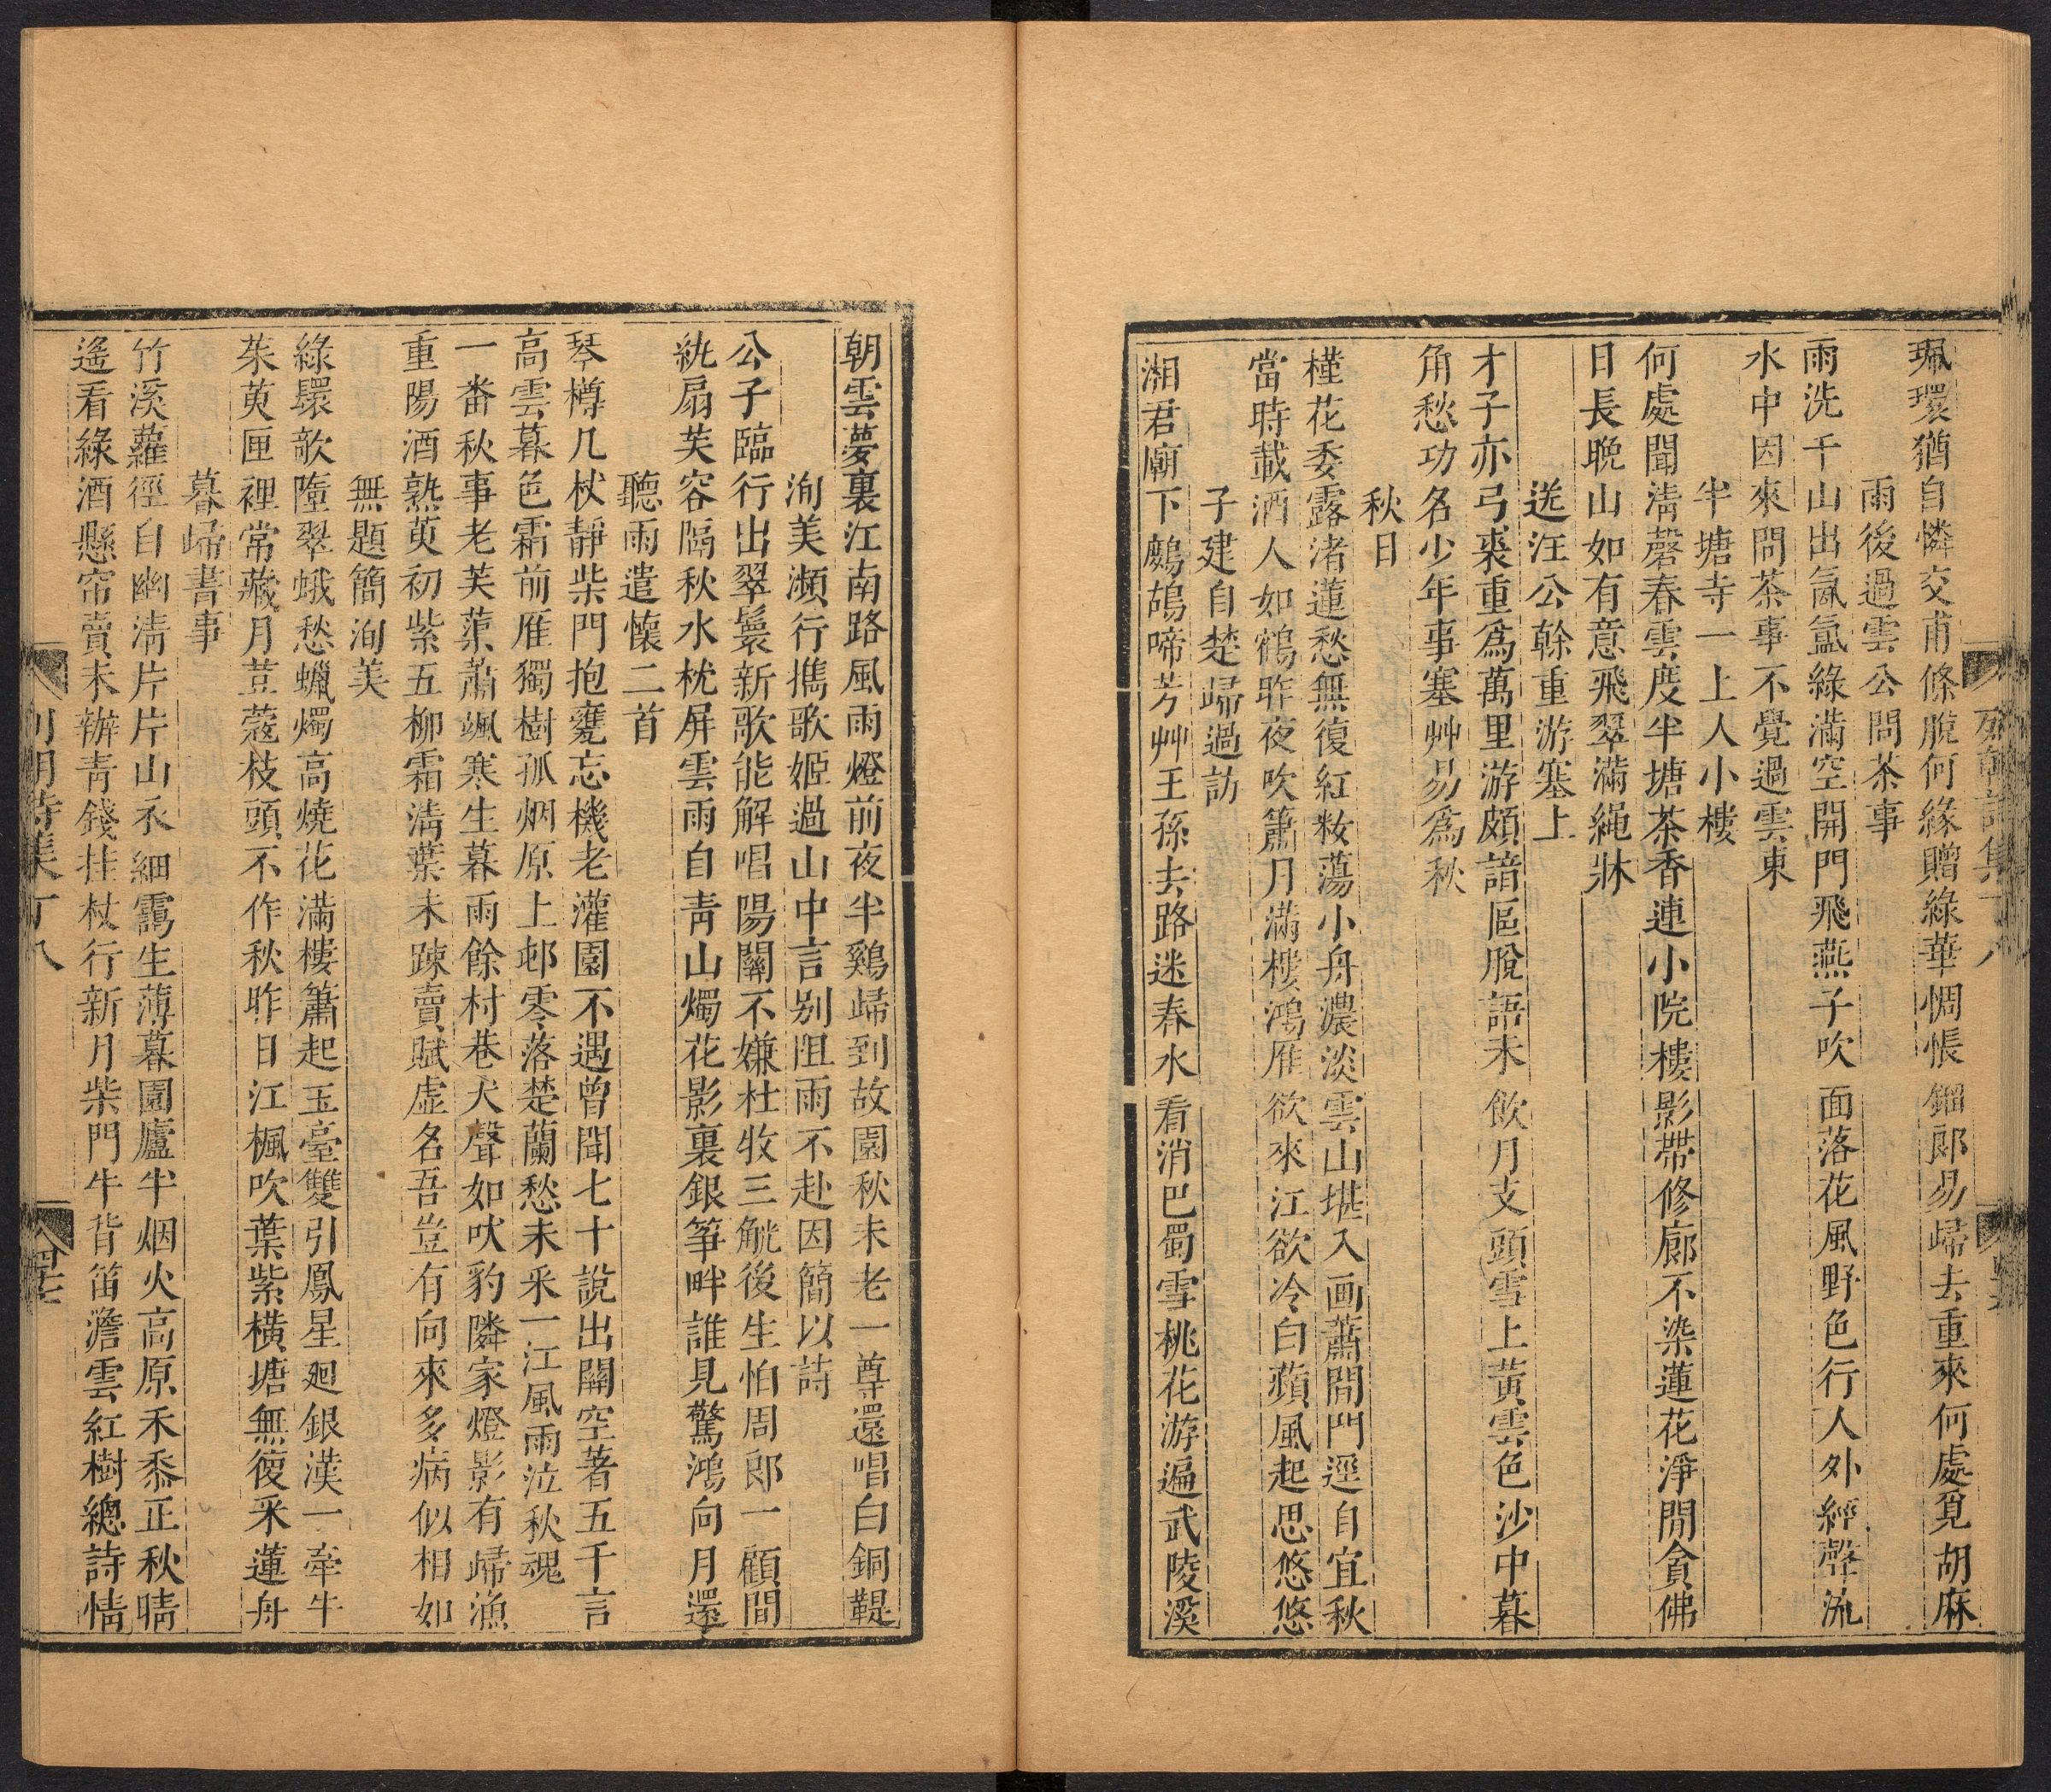 珮環猶自憐交甫條脫何緣贈綠華惆悵鈿郎易歸去重來何處覓胡麻
雨後過雲公問茶事
雨洗千山出氤氳綠滿空開門飛燕子吹面落花風野色行人外經聲流
水中因來問茶事不覺過雲東
半塘寺一上人小樓
何處聞淸磬春雲度半塘茶香連小院樓影帶修廊不染蓮花淨閒貪佛
日長晚山如有意飛翠滿繩牀
送汪公幹重游塞上
才子亦弓裘重爲萬里游頗諳區脫語未飲月支頭雪上黃雲色沙中暮
角愁功名少年事塞艸易爲秋
秋日
槿花委露渚蓮愁無復紅粧蕩小舟濃淡雲山堪入画蕭閒門逕自宜秋
當時載酒人如鶴昨夜吹簫月滿樓鴻雁欲來江欲冷白蘋風起思悠悠
子建自楚歸過訪
湘君廟下鷓鴣啼芳艸王孫去路迷春水看消巴蜀雪桃花游遍武陵溪
朝雲夢裏江南路風雨燈前夜半鷄歸到故園秋未老一尊還唱白銅鞮
洵美瀕行擕歌姬過山中言别阻雨不赴因簡以詩
公子臨行出翠鬟新歌能解唱陽關不嫌杜牧三觥後生怕周郎一顧間
紈扇芙容隔秋水枕屏雲雨自靑山燭花影裏銀箏畔誰見驚鴻向月還
聽雨遣懷二首
琴樽几杖靜柴門抱甕忘機老灌園不遇曾聞七十說出關空著五千言
高雲暮色霜前雁獨樹孤烟原上邨零落楚蘭愁未采一江風雨泣秋魂
一畨秋事老芙蕖蕭颯寒生暮雨餘村巷犬聲如吠豹隣家燈影有歸漁
重陽酒熟萸初紫五柳霜淸葉未踈賣賦虛名吾豈有向來多病似相如
無題簡洵美
綠鬟欹墮翠蛾愁蠟燭高燒花滿樓簫起玉臺雙引鳳星廻銀漢一牽牛
茱萸匣裡常藏月荳蔻枝頭不作秋昨日江楓吹葉紫橫塘無復采蓮舟
暮歸書事
竹溪蘿徑自幽淸片片山衣細靄生薄暮園廬半烟火高原禾黍正秋晴
遙看綠酒懸帘賣未辦靑錢拄杖行新月柴門牛背笛澹雲紅樹總詩情